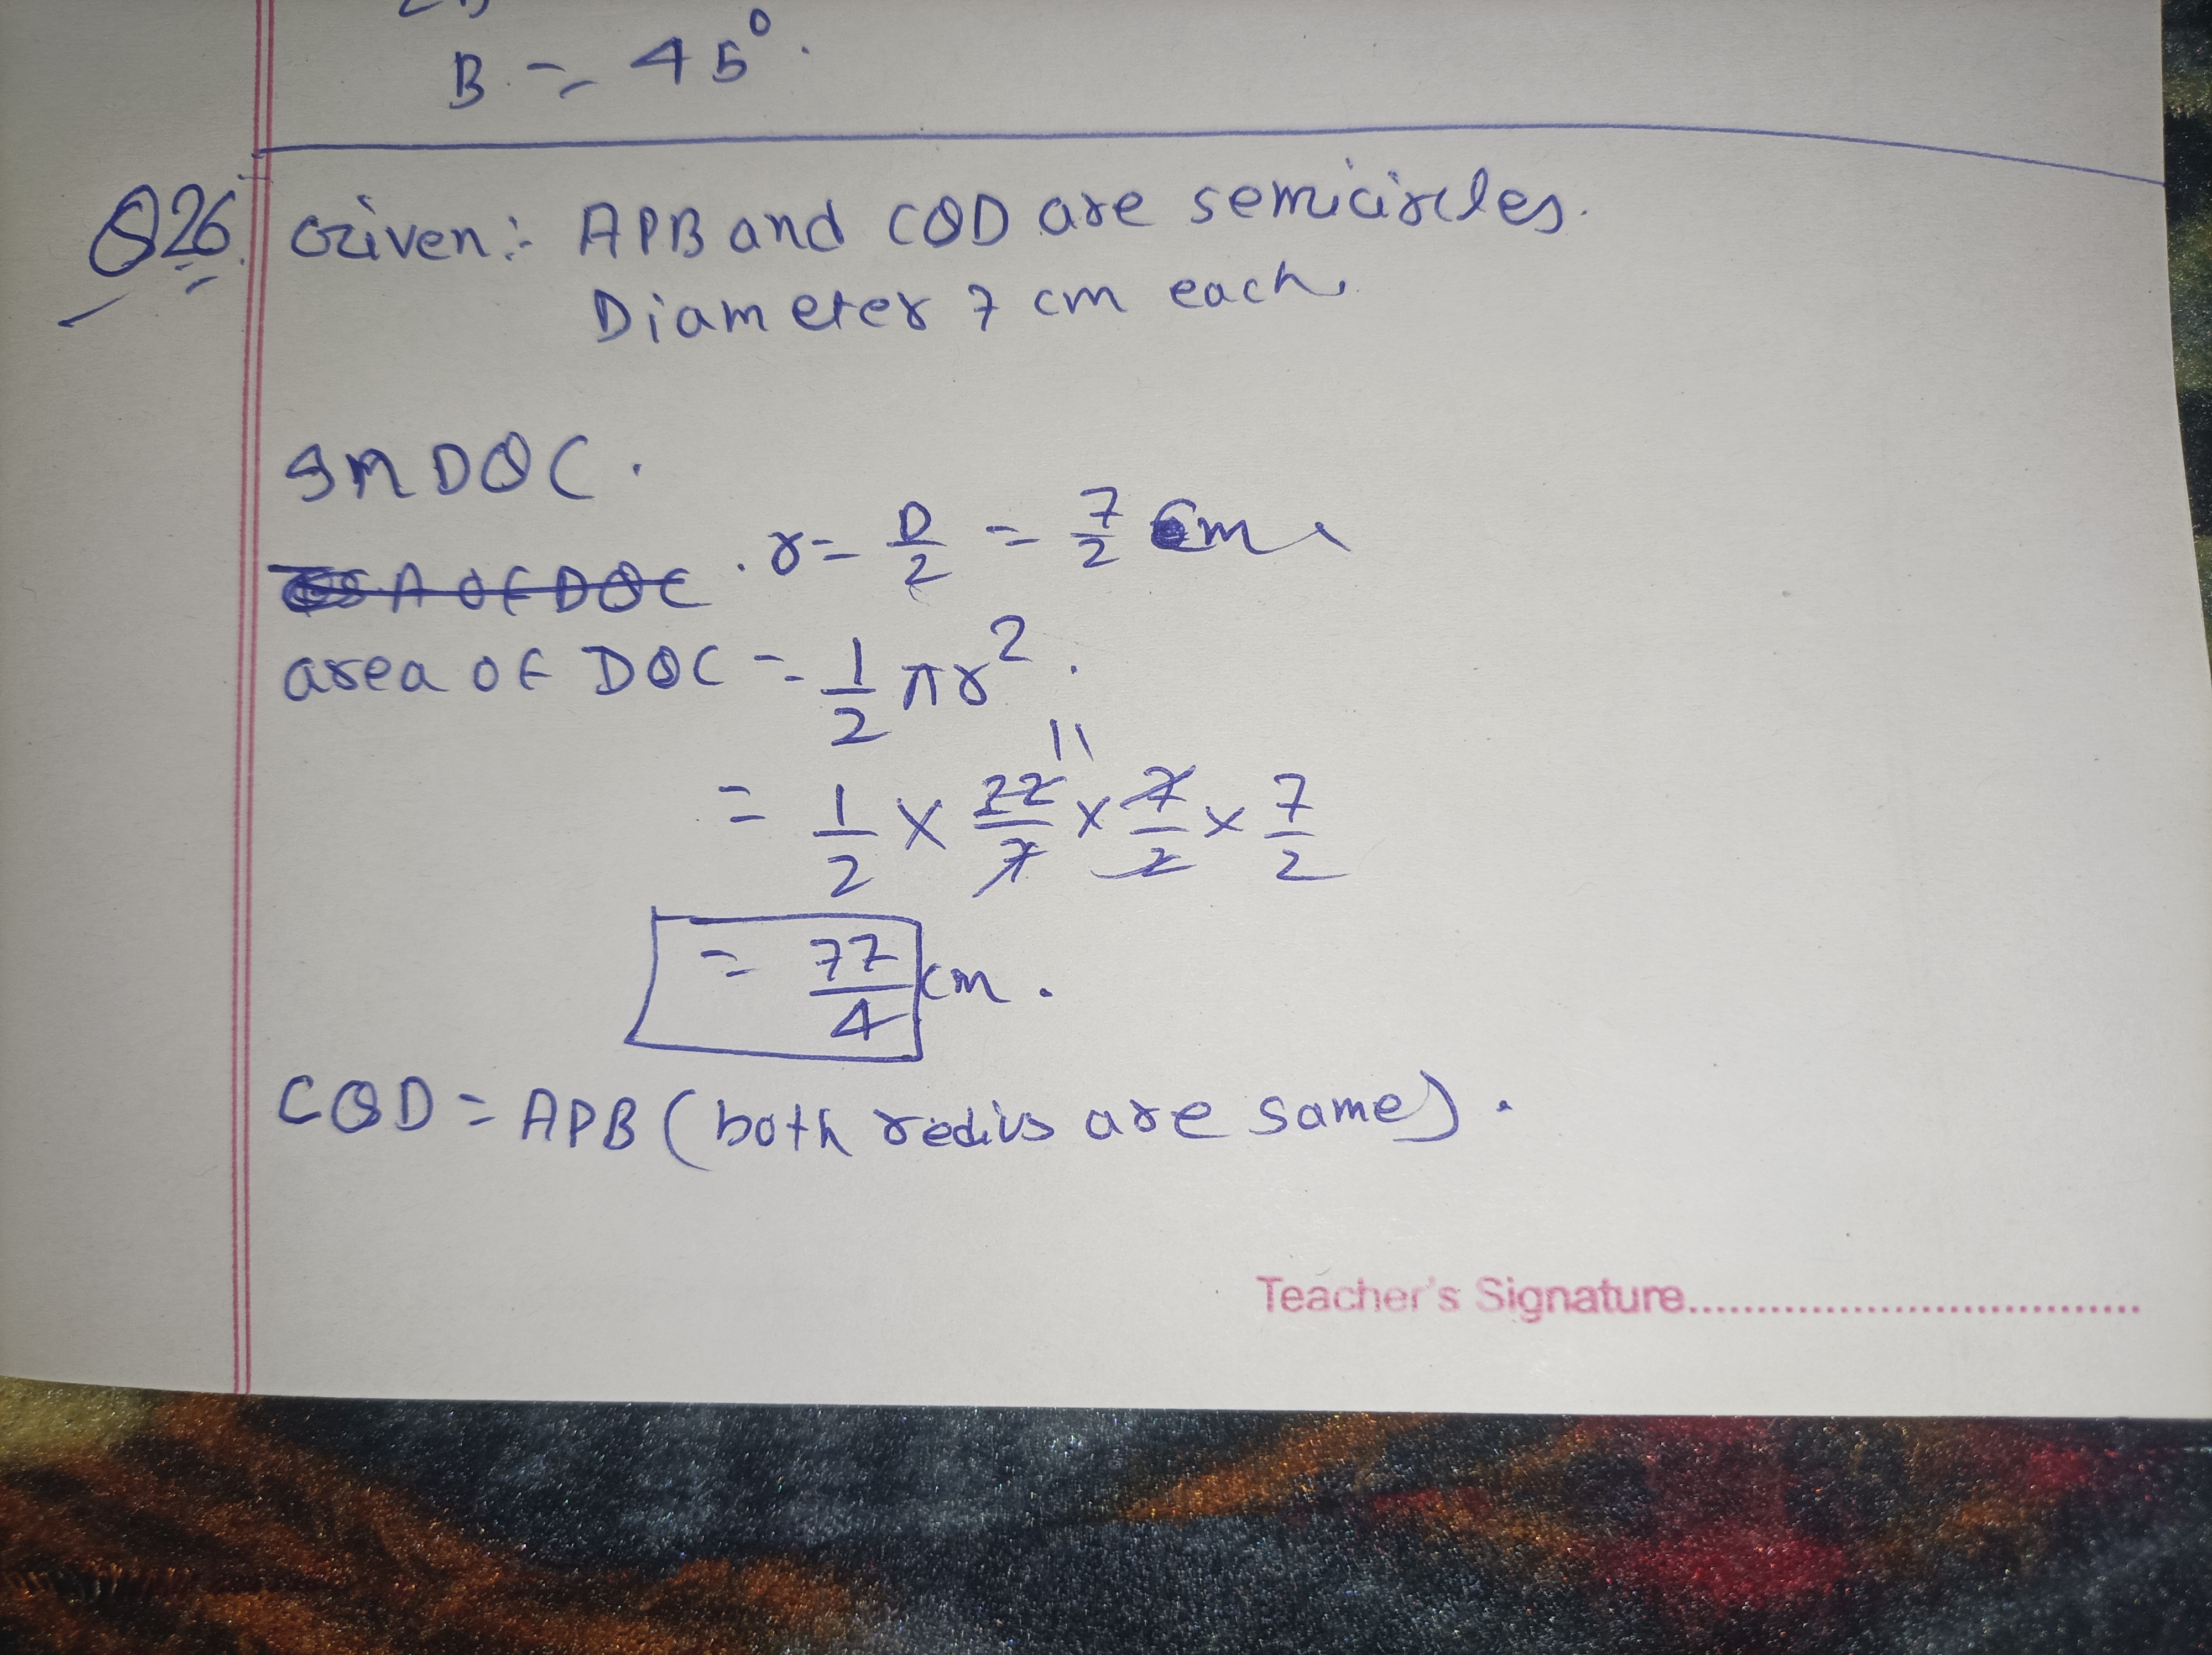 B = 45°.
Q26. Given:- APB and CQD are semicircles.
Diameter 7 cm each.
In DQC.
r = D/2 = 7/2 cm.
A of DQC
area of DQC = 1/2 πr².
11
= 1/2 × 22/7 × 7/2 × 7/2
= 77/4 cm.
CQD = APB (both redius are same).
Teacher's Signature